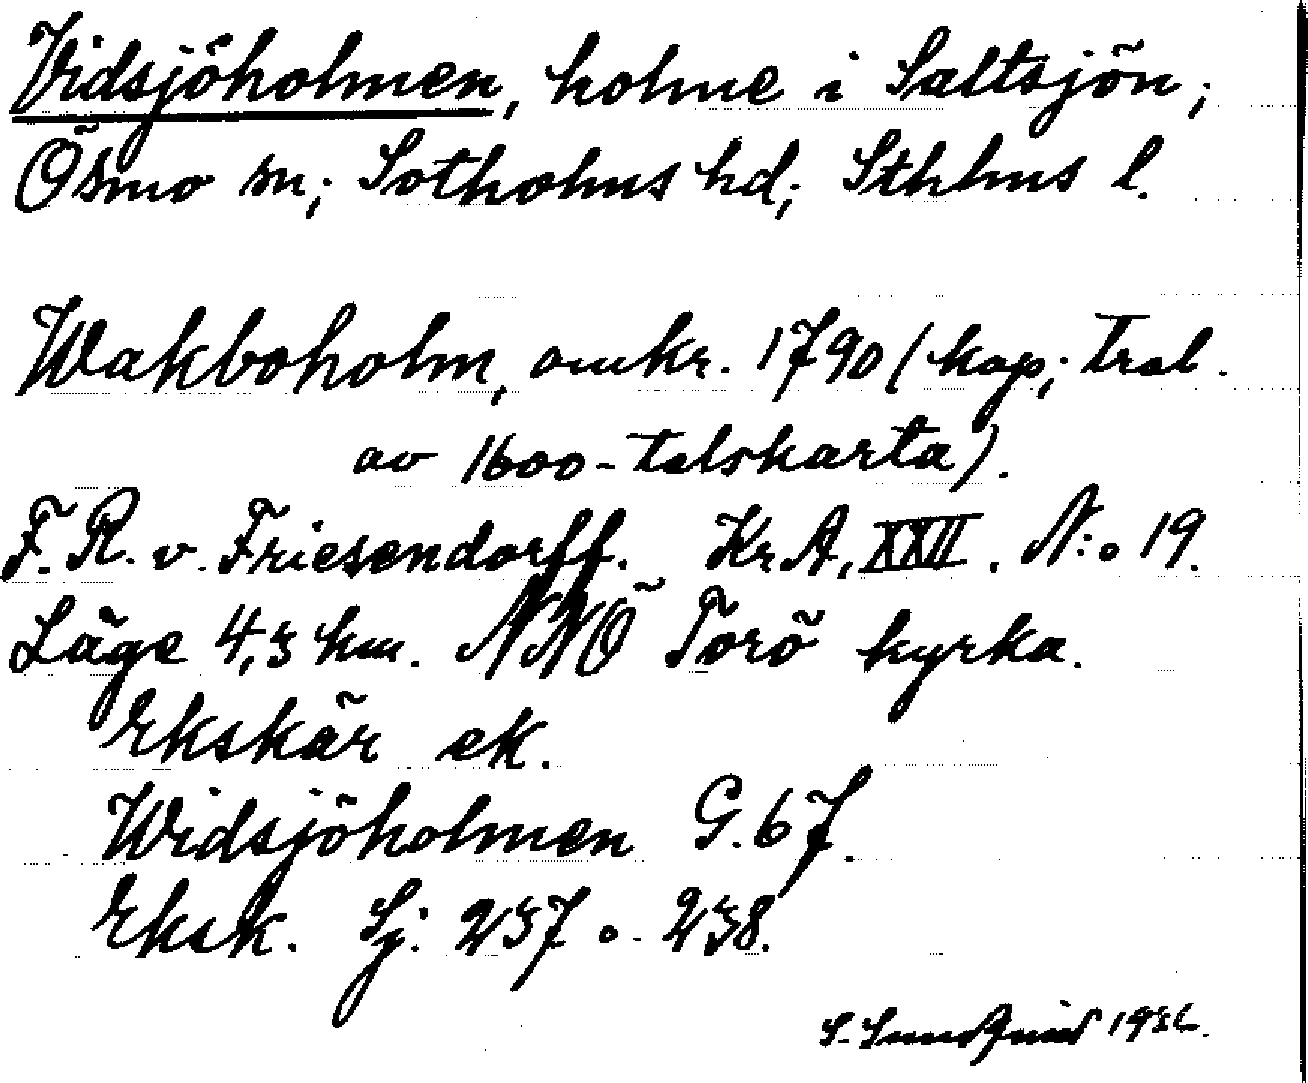 Vidsjöholmen, holme i Saltsjön;
Ösmo sn; Sotholms hd; Sthlms l.
Wakboholm, omkr. 1790 (kop; trol.
av 1600-talskarta).
F. R. v. Friesendorff. Kr A, XXII. N:o 19.
Läge 4,5 km. NNÖ Torö kyrka.
Ekskär ek.
Widsjöholmen G. 67.
Eksk. Sj: 237 o. 238.
S. Sundquist